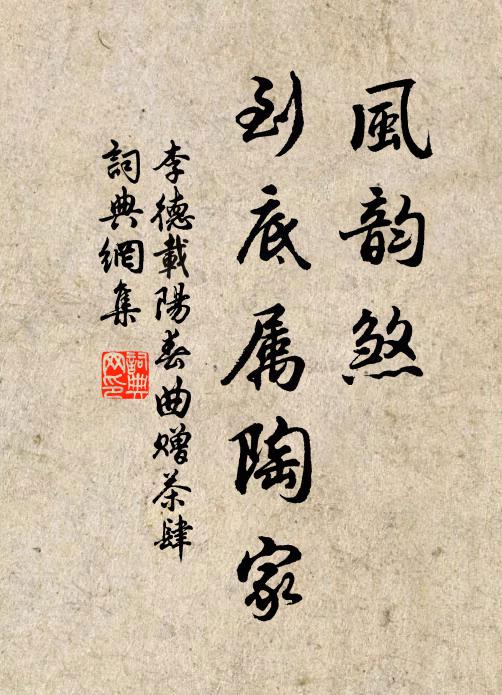 風韵煞
到底属陶家
李德載陽春曲贈茶肆
詞典網集
詞典网印